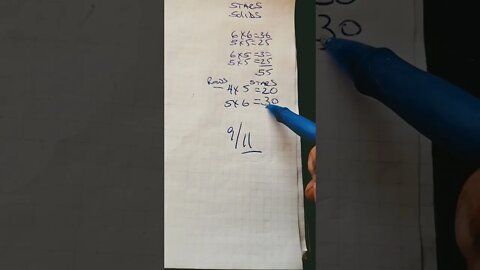 STARS
SOLIDS
6×6=36
5×5=25
6×5=30
5×5=25
55
ROWS STARS
4×5=20
5×6=30
9/11
30
30